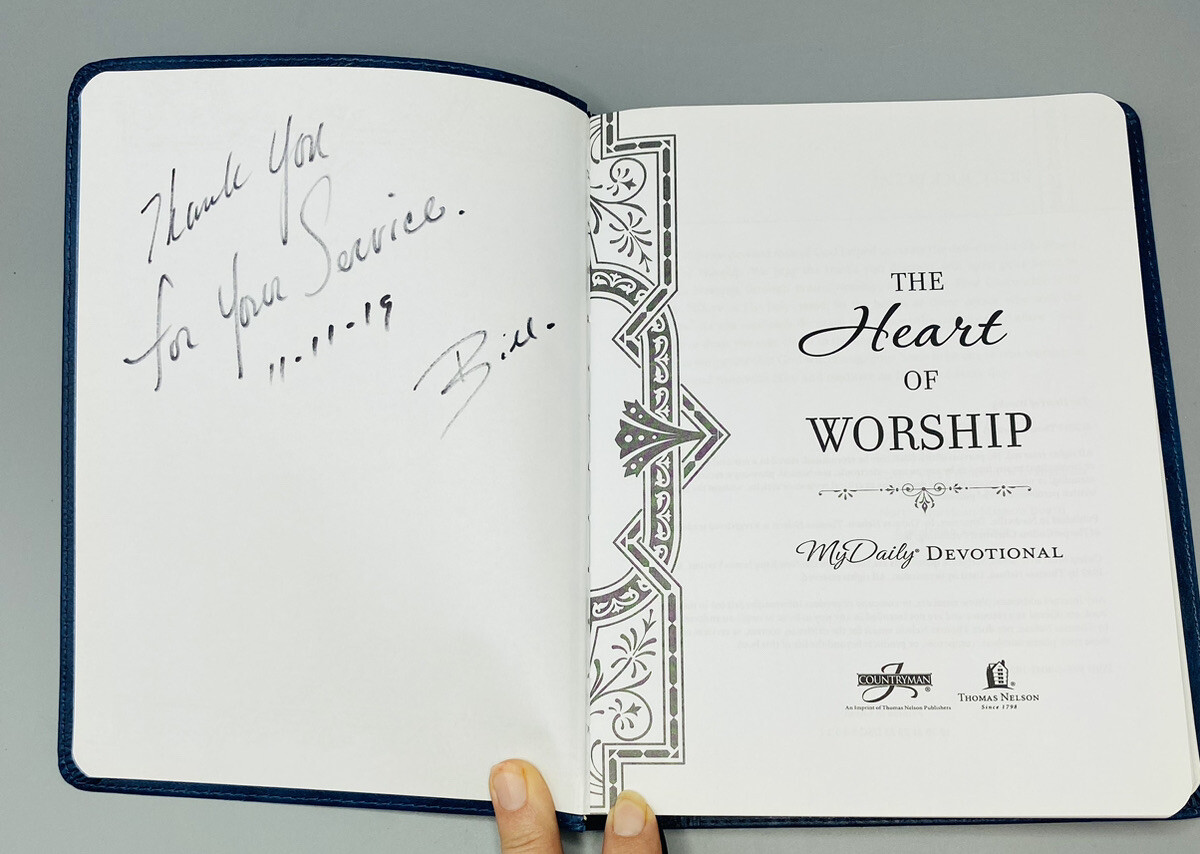 Thank You
for Your Service.
11-11-19
Bill.
THE
Heart
OF
WORSHIP
MyDaily® DEVOTIONAL
J
COUNTRYMAN®
An Imprint of Thomas Nelson Publishers
THOMAS NELSON®
Since 1798